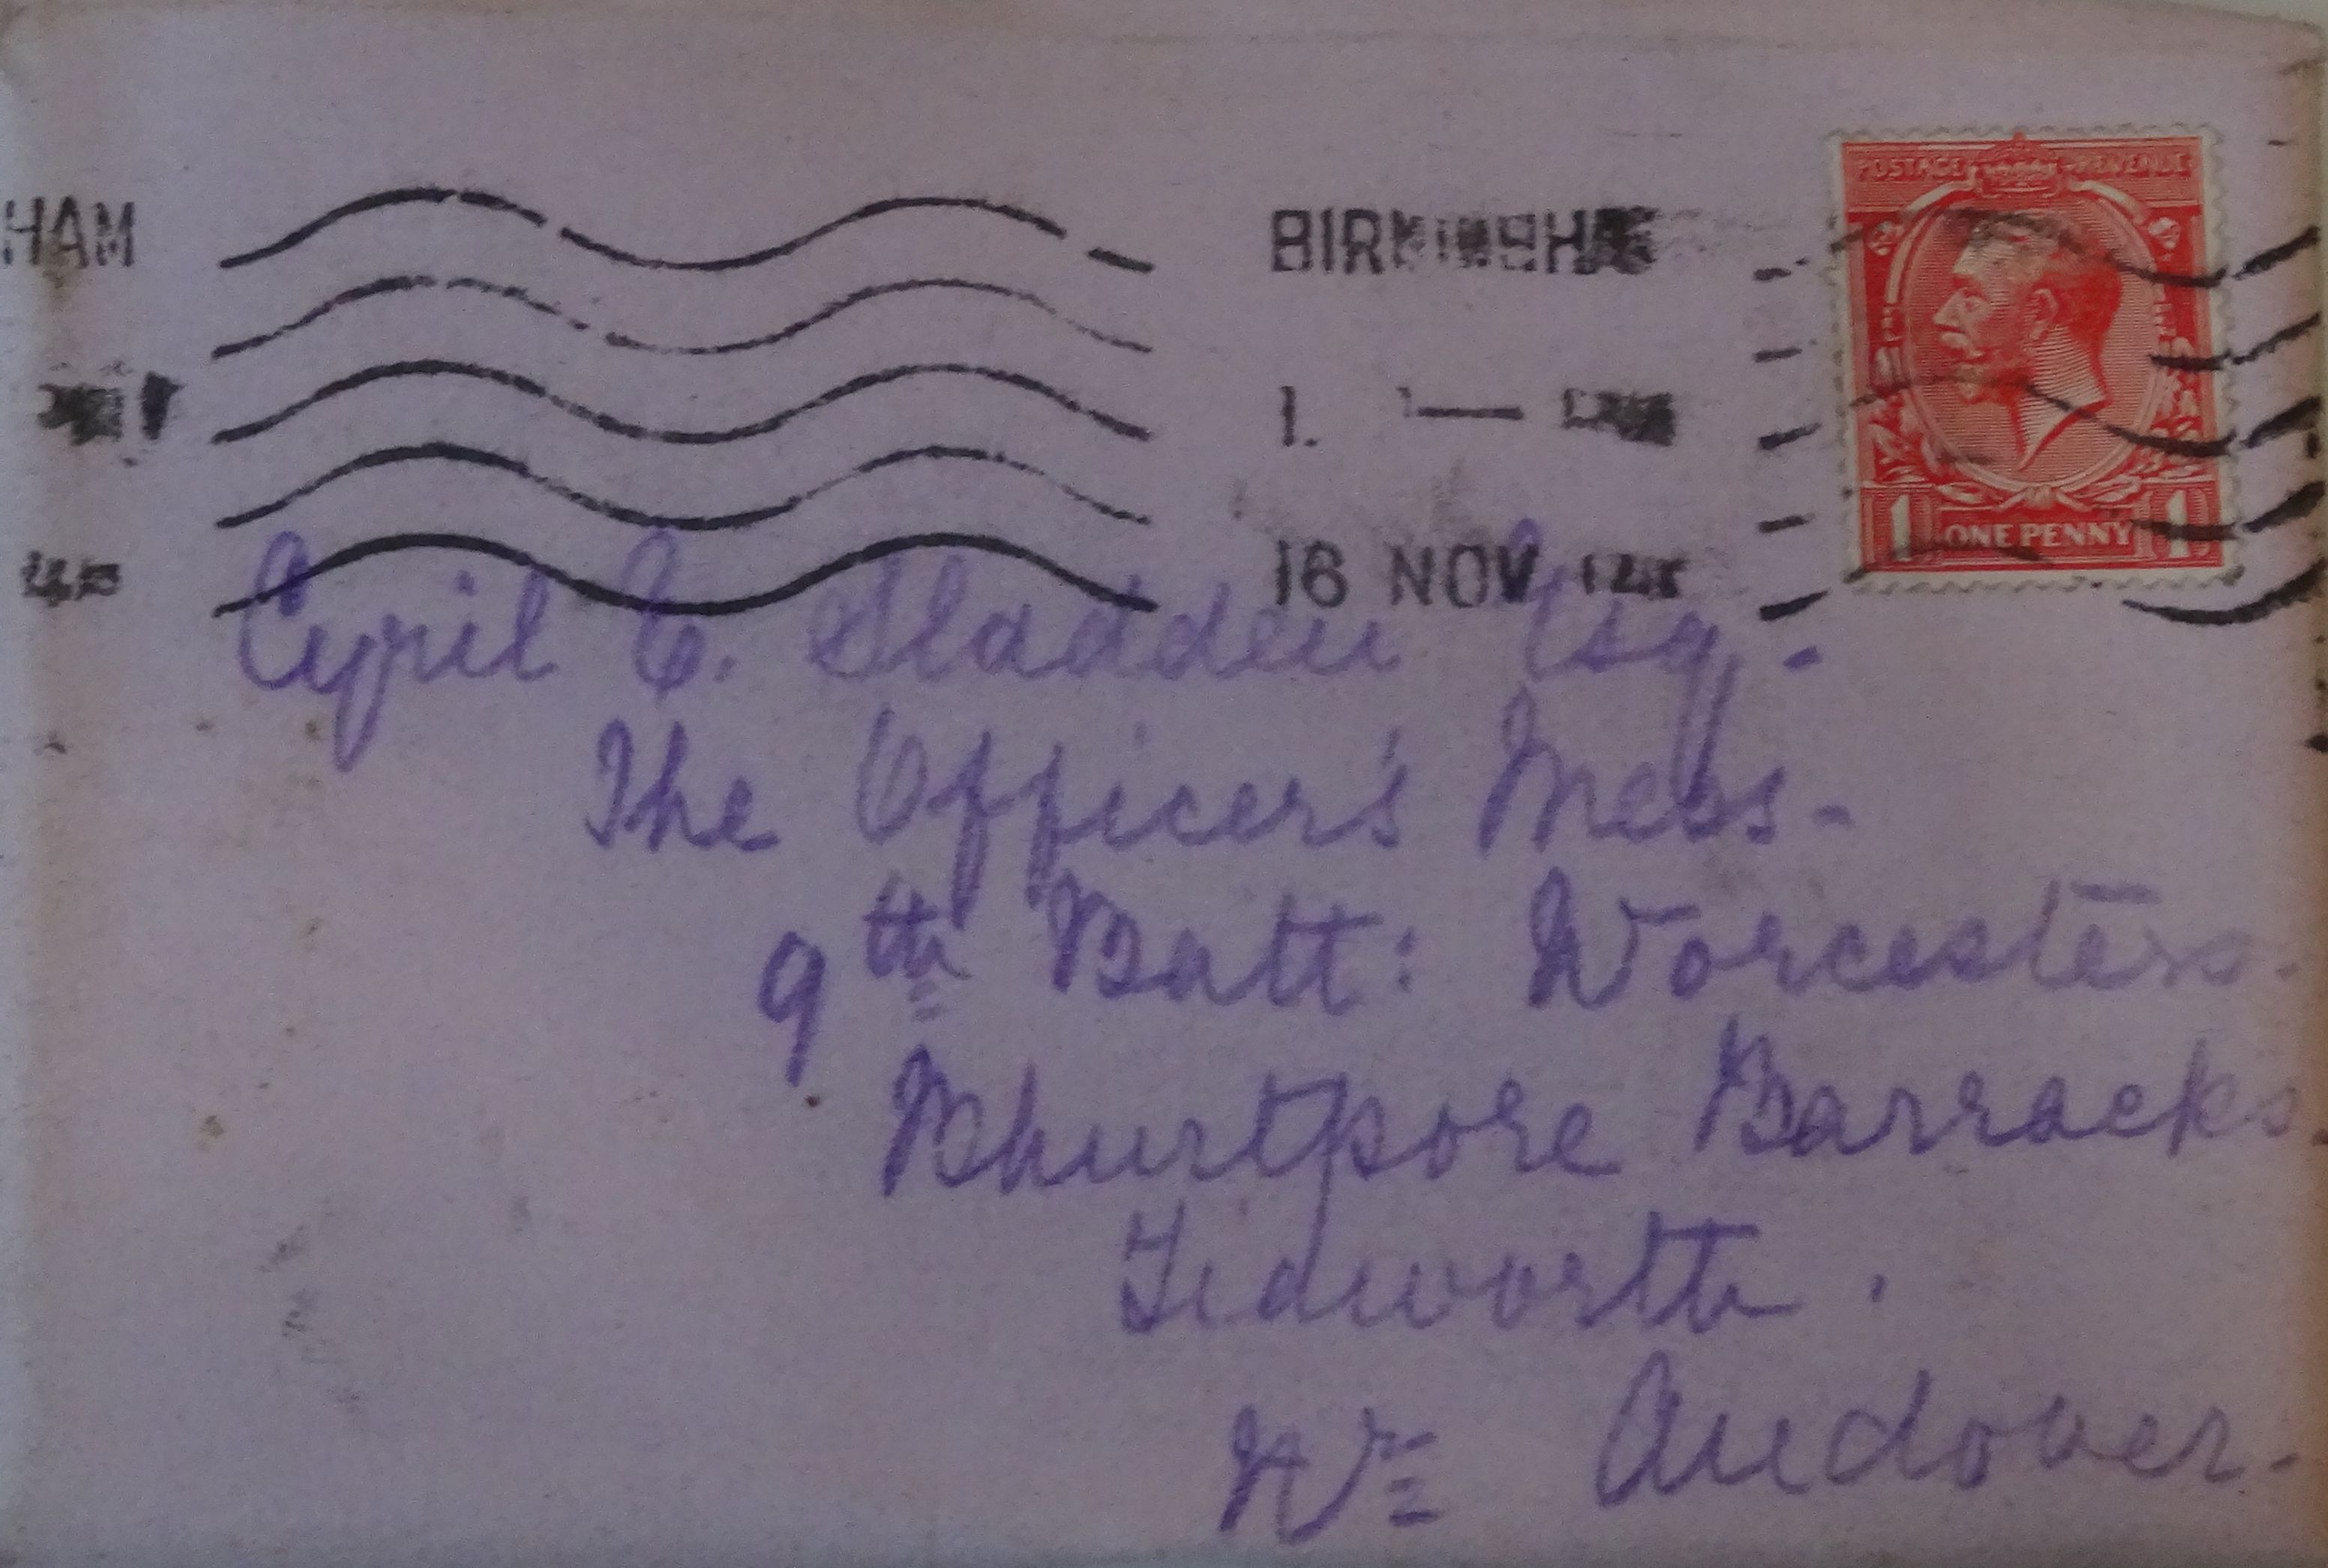 POSTAGE REVENUE
HAM
BIRMINGHA
1.
16 NOV
ONE PENNY
1 1
Cyril E. Sladden Esq.
The Officer's Mess-
9th Batt: Worcesters.
Bhurtpore Barracks.
Tidworth.
Nr Andover.